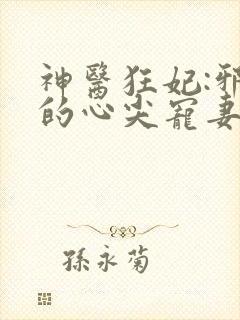 神醫狂妃:邪
的心尖寵妻
孫永菊